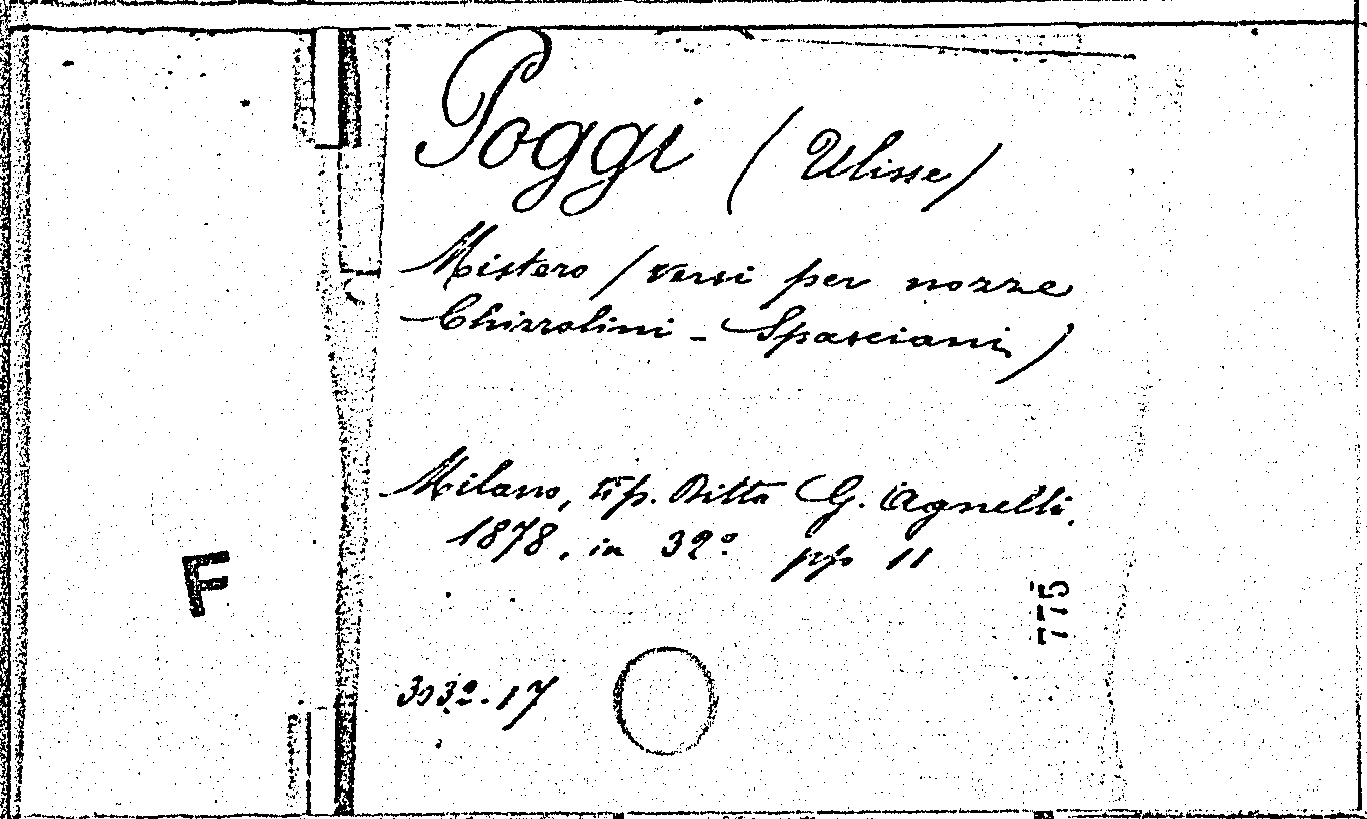 Poggi (Ulisse)
Mistero (versi per nozze
Chizzolini - Spasciani)
Milano, tip. Ditta G. Agnelli.
1878. in 32° pp 11
F
775
3032.17